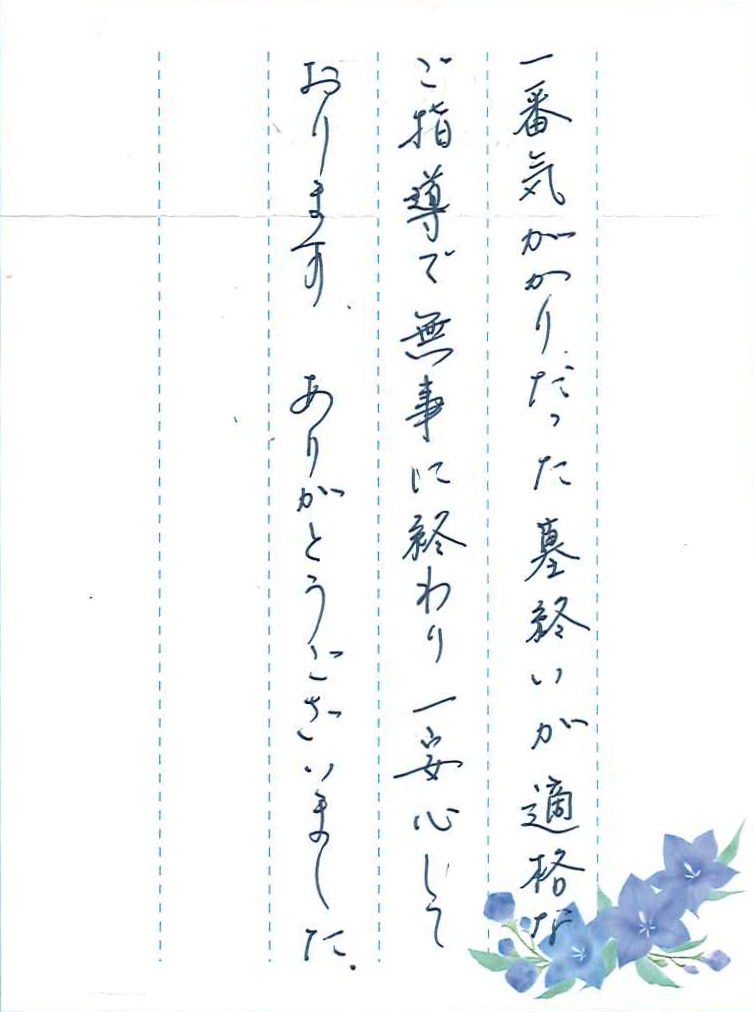 一番気がかりだった墓終いが適格な
ご指導で無事に終わり一安心して
おります。ありがとうございました。